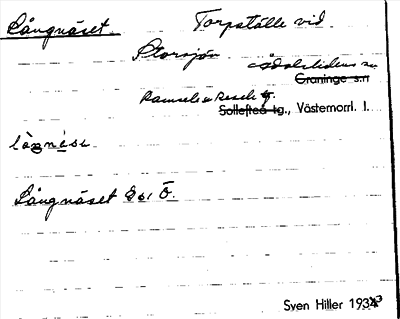 Långnäset. Torpställe vid
Storsjön Ådalslidens sn
Graninge s:n
Ramsele o Resele tg.
Sollefteå tg., Västernorrl. l.
Långnäset Ek. Ö.
Sven Hiller 1933